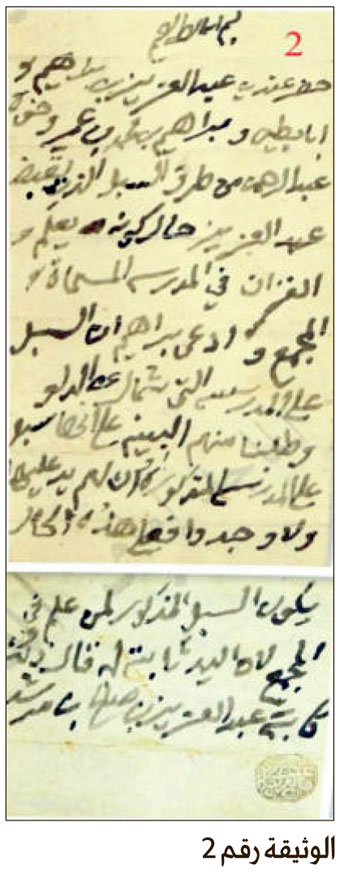 بسم الله الرحمن الرحيم
2
حضر عندي عبد العزيز بن ابراهيم
ابابطين وبراهيم بن محمد بن عمير وحضر
عبد الرحمن من طرف السبل الذي يقبضه
عبد العزيز حال كونه يعلم
القران في المدرسه المسماة
المجمع وادعى براهيم ان السبل
على المدرسه التي شمال عن الدلو
وطلبنا منهم البينه على انها سبل
على المدرسه المذكورة لهم يد عليها
ولا وجد واقع هذه الحال
يكون السبل المذكور لمن علم في
المجمع لان اليد ثابته له قال ذلك
كاتبه عبد العزيز بن صالح بن مرشد
الوثيقة رقم 2